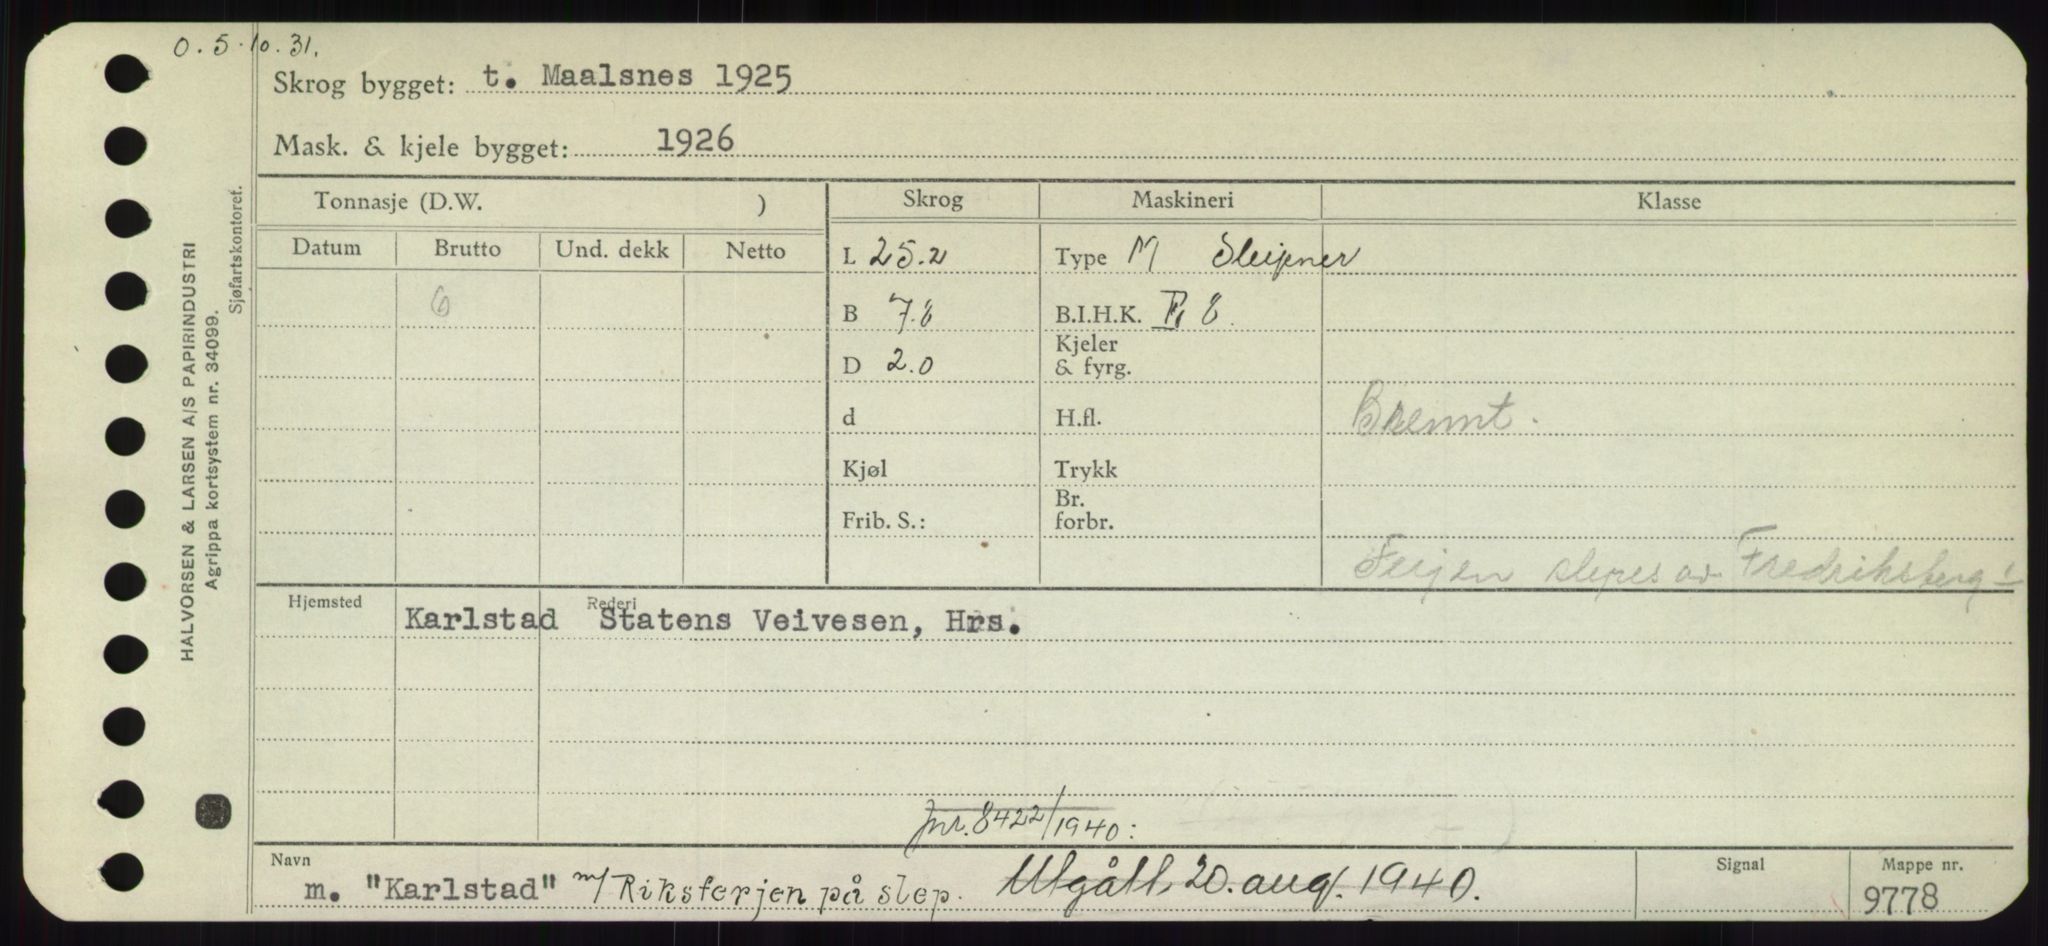 O. 5.10.31.
Skrog bygget: t. Maalsnes 1925
Mask. & kjele bygget: 1926
Tonnasje (D.W. ) Skrog Maskineri Klasse
Datum Brutto Und. dekk Netto
L 25.2 Type M Sleipner
6
B 7.8 B.I.H.K. 8
D 2.0 Kjeler & fyrg.
d H.fl. Brennt.
Kjøl Trykk
Frib. S.: Br. forbr.
Ferjen slepes av Fredriksberg
Hjemsted Rederi
Karlstad Statens Veivesen, Hrs.
Jnr. 8422/1940:
Navn Signal Mappe nr.
m. "Karlstad" m/Riksferjen på slep. Utgått 20. aug. 1940. 9778
HALVORSEN & LARSEN A/S PAPIRINDUSTRI
Agrippa kortsystem nr. 34099.
Sjøfartskontoret.